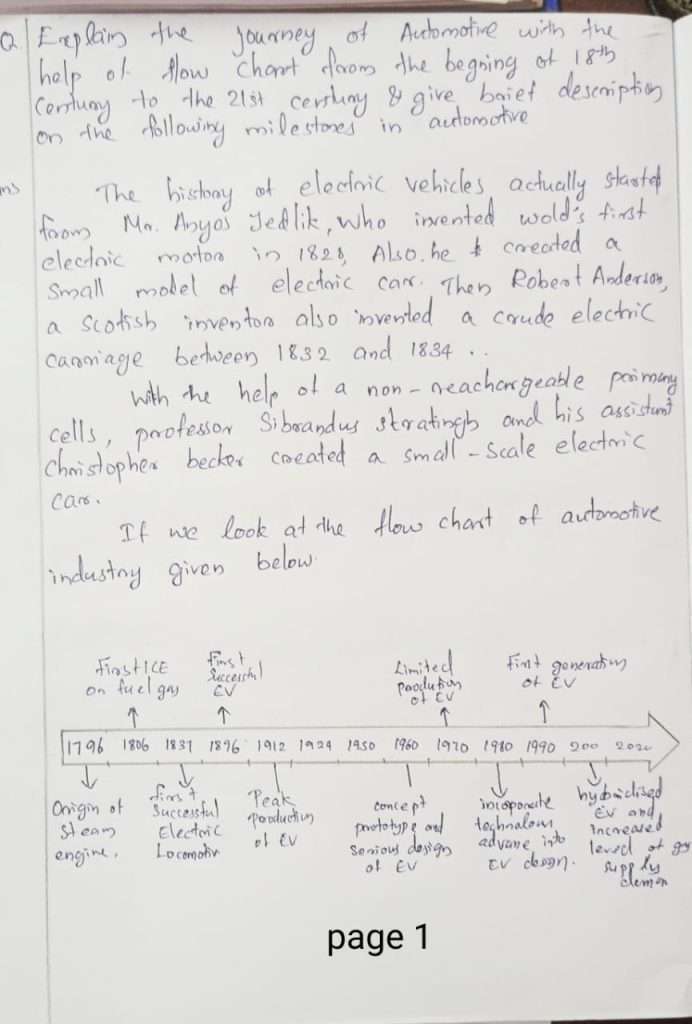 Q Explain the journey of Automotive with the
help of flow chart from the begning of 18th
Century to the 21st century & give brief description
on the following milestones in automotive
ns The history of electric vehicles actually started
from Mr. Anyos Jedlik, who invented wold's first
electric motor in 1828, Also he created a
small model of electric car. Then Robert Anderson,
a Scotish inventor also invented a crude electric
carriage between 1832 and 1834 ..
With the help of a non-reachargeable primary
cells, professor Sibrandus stratingh and his assistant
Christopher becker created a small-scale electric
car.
If we look at the flow chart of automotive
industry given below.
First ICE
on fuel gas
First
Successful
EV
Limited
production
of EV
First generation
of EV
1796 1806 1831 1896 1912 1924 1950 1960 1970 1980 1990 200 2020
Origin of
steam
engine.
first
Successful
Electric
Locomotiv
Peak
production
of EV
concept
prototype and
Serious design
of EV
incoporate
advane into
EV design.
hybridised
EV and
increased
level of
supply
page 1